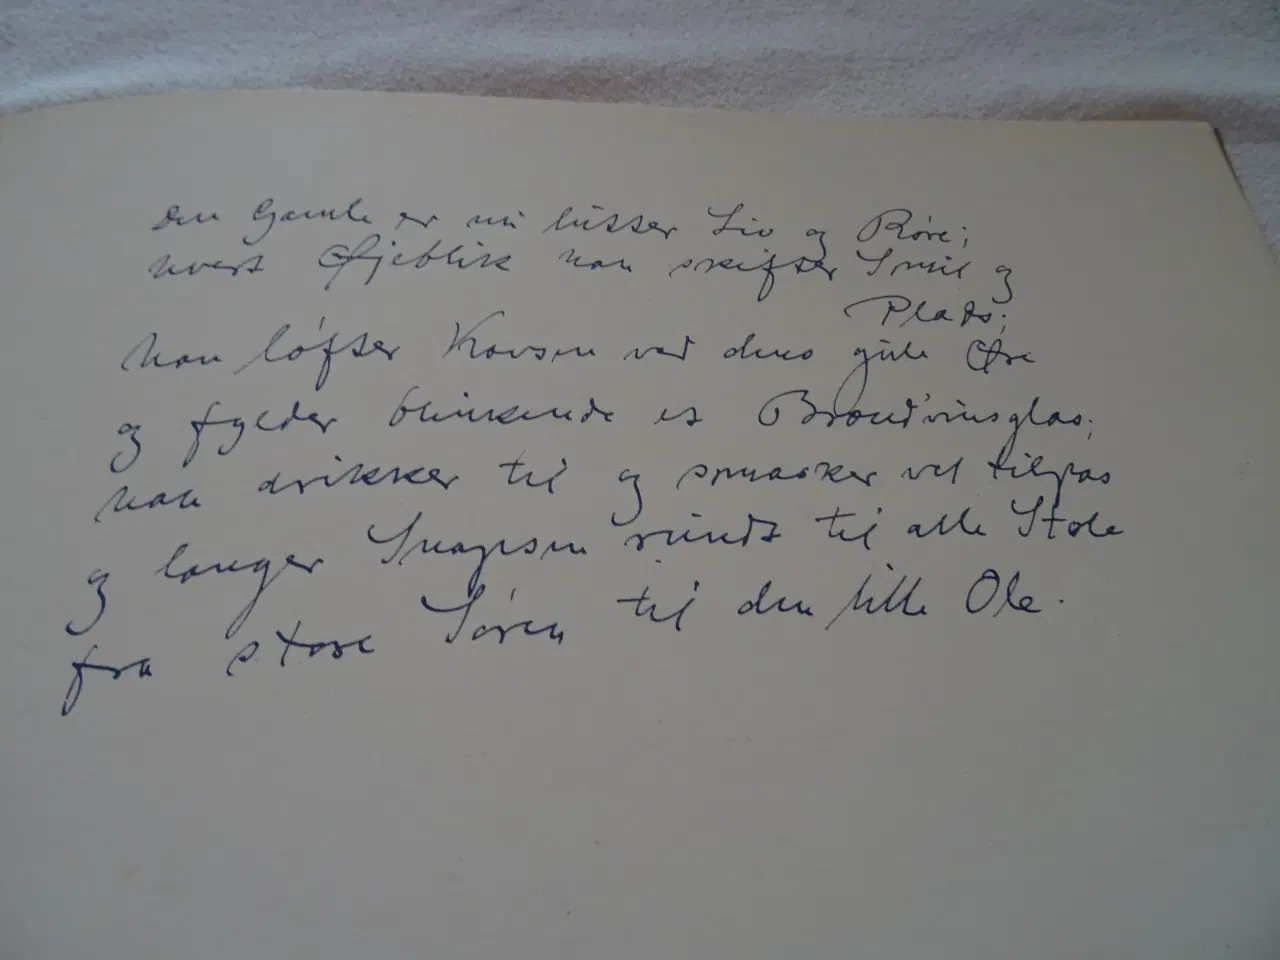 Den Gamle er nu lutter Liv og Røre;
hvert Øjeblik han skifter Smil og
Plads;
han løfter Kovsen ved dens gule Øre
og fylder blinkende et Brændvinsglas;
han drikker til og smasker vel tilpas
og langer Snapsen rundt til alle Stole
fra store Søren til den lille Ole.